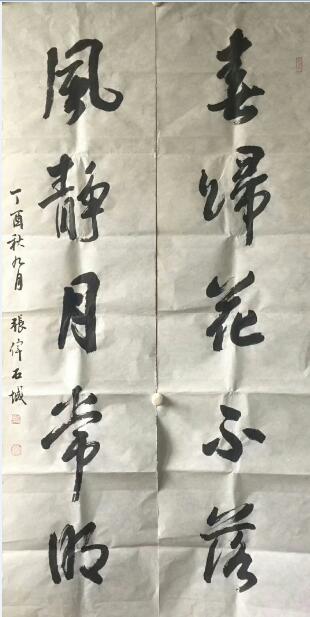 春歸花不落
風靜月常明
丁酉秋九月 張偉石城